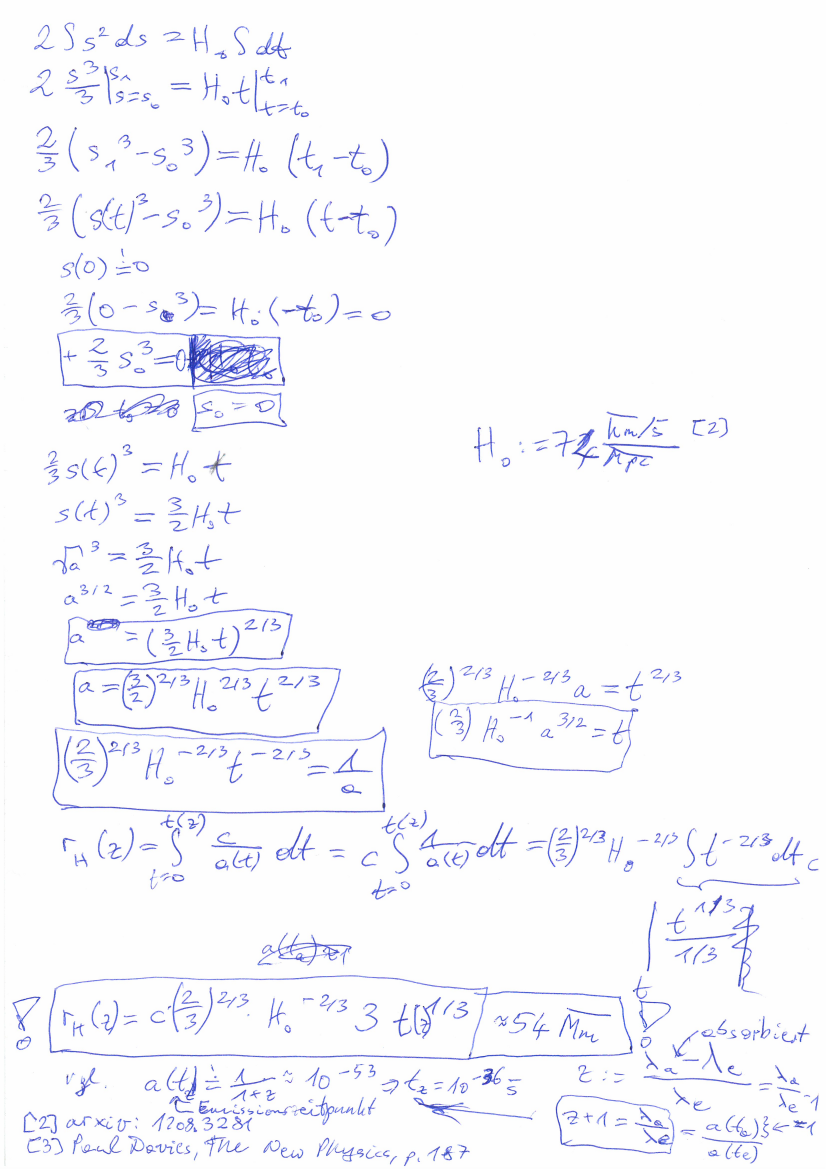 2 ∫ s² ds = H₀ ∫ dt
2 s³/3 |ₛ₌ₛ₀^s₁ = H₀ t |ₜ₌ₜ₀^t₁
2/3 (s₁³ - s₀³) = H₀ (t₁ - t₀)
2/3 (s(t)³ - s₀³) = H₀ (t - t₀)
s(0) ≐ 0
2/3 (0 - s₀³) = H₀·(-t₀) = 0
+ 2/3 s₀³ = 0
s₀ = 0
H₀ := 74 km/s / Mpc [2]
2/3 s(t)³ = H₀ t
s(t)³ = 3/2 H₀ t
√a³ = 3/2 H₀ t
a^3/2 = 3/2 H₀ t
a = (3/2 H₀ t)^2/3
a = (3/2)^2/3 H₀^2/3 t^2/3
(2/3)^2/3 H₀^-2/3 a = t^2/3
(2/3) H₀^-1 a^3/2 = t
(2/3)^2/3 H₀^-2/3 t^-2/3 = 1/a
r_H(z) = ∫ₜ₌₀^t(z) c/a(t) dt = c ∫ₜ₌₀^t(z) 1/a(t) dt = (2/3)^2/3 H₀^-2/3 ∫ t^-2/3 dt c
| t^1/3 / 1/3
a(tₑ) ≈ 1
! r_H(z) = c (2/3)^2/3 · H₀^-2/3 3 t(z)^1/3 ≈ 54 Mm !
absorbiert
vgl. a(t_z) ≐ 1/1+z ≈ 10^-53 ⇒ t_z = 10^-36 s
z := λa - λe / λe = λa/λe - 1
↑ Emissionszeitpunkt
z + 1 = λa/λe = a(tₐ)/a(tₑ) } ← ≈1
[2] arxiv: 1208.3281
[3] Paul Davies, The New Physics, p. 187